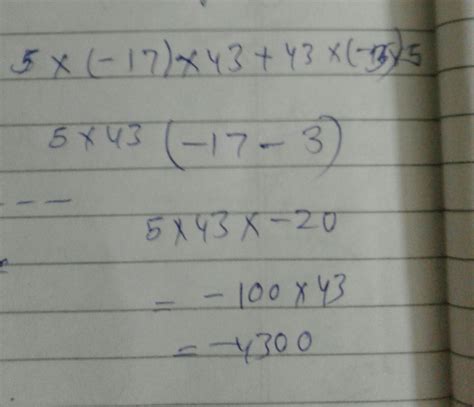 5 × (-17) × 43 + 43 × (-3) × 5
5 × 43 (-17 - 3)
5 × 43 × -20
= -100 × 43
= -4300